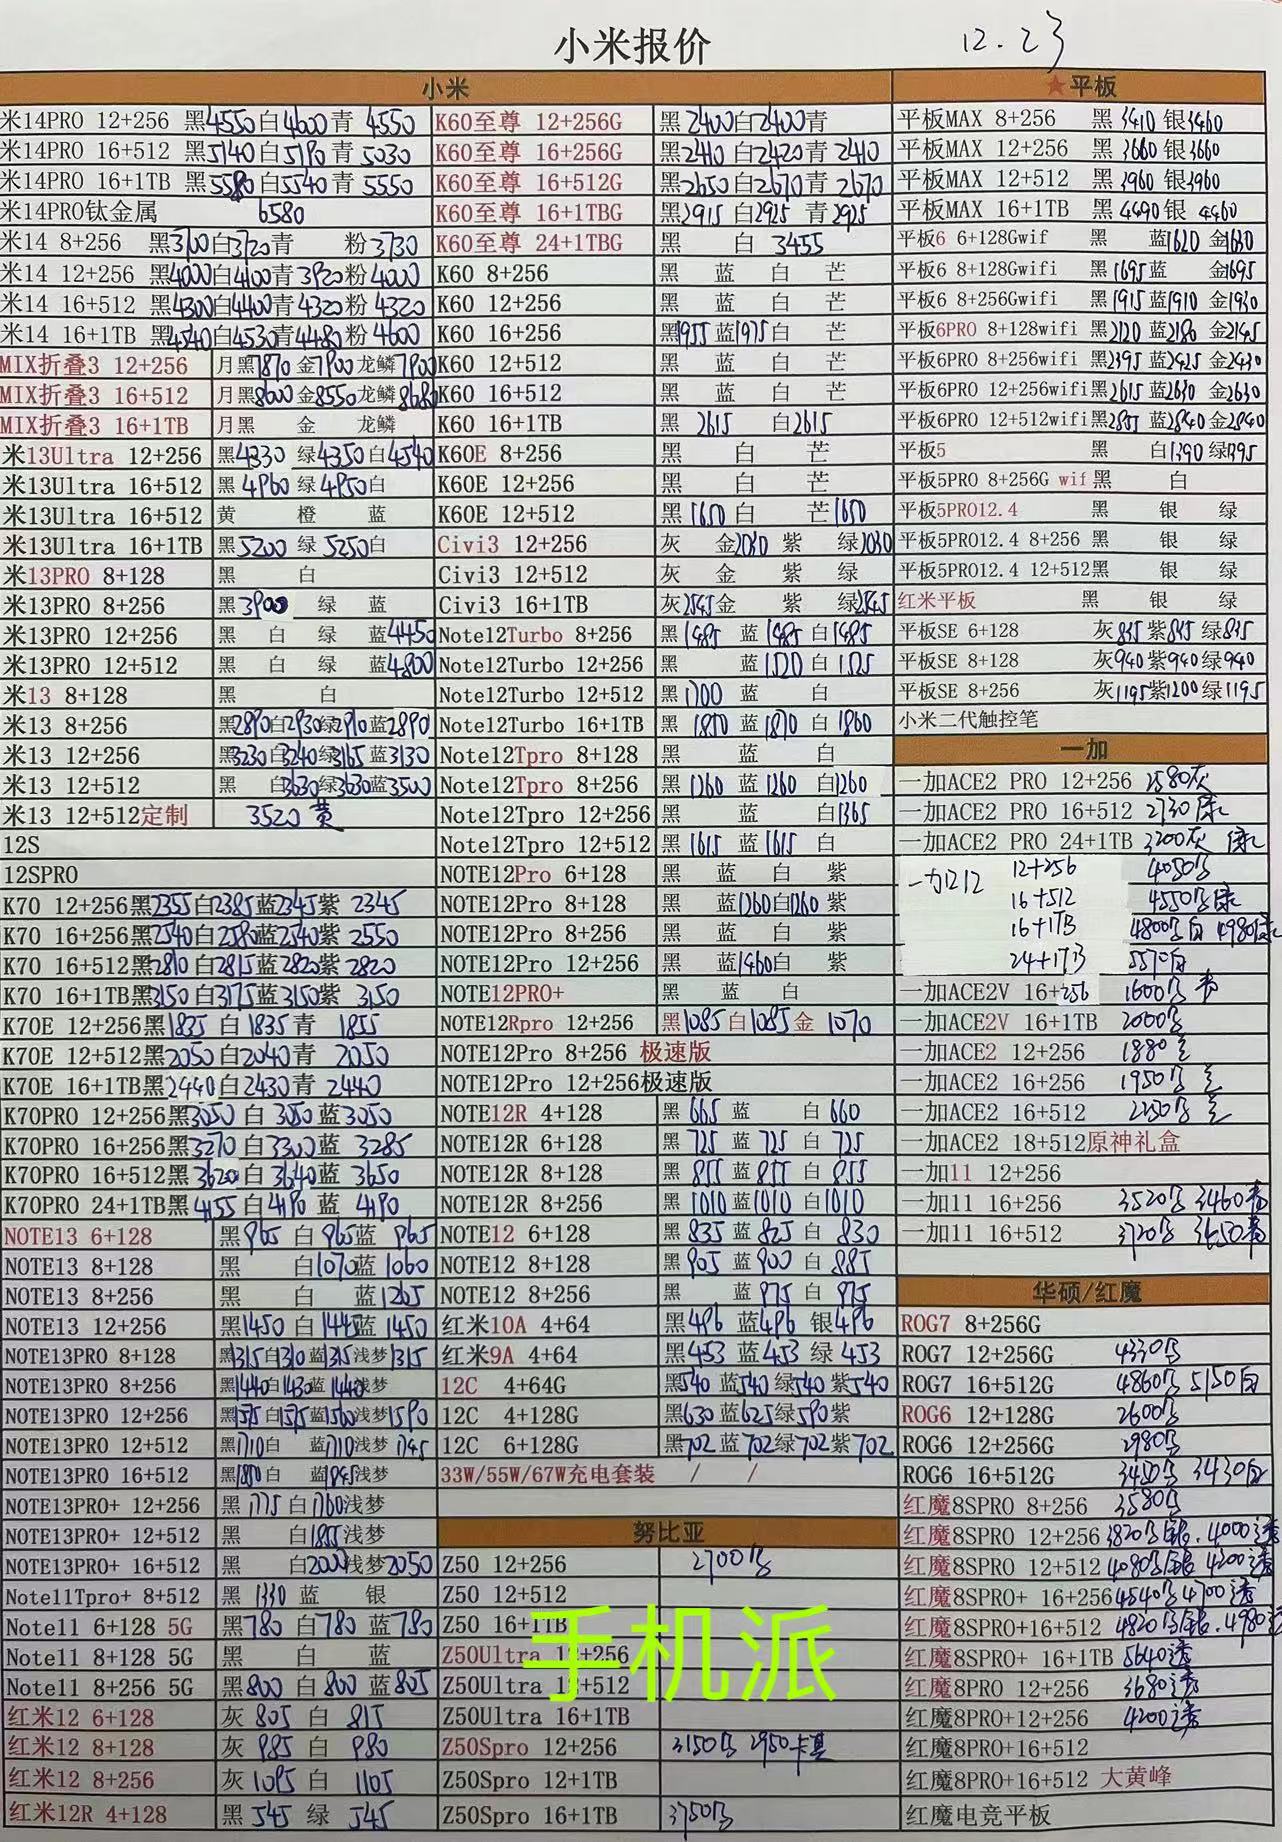 小米报价 12.23
小米
米14PRO 12+256 黑4550白4600青 4550
米14PRO 16+512 黑5140白5190青 5030
米14PRO 16+1TB 黑5580白5540青 5550
米14PRO钛金属 6580
米14 8+256 黑3700白3720青 粉3730
米14 12+256 黑4000白4100青3920粉4000
米14 16+512 黑4300白4400青4320粉4320
米14 16+1TB 黑4540白4530青4480粉4600
MIX折叠3 12+256 月黑7870金7900龙鳞7900
MIX折叠3 16+512 月黑8600金8550龙鳞8680
MIX折叠3 16+1TB 月黑 金 龙鳞
米13Ultra 12+256 黑4330 绿4350白4540
米13Ultra 16+512 黑4960 绿4950白
米13Ultra 16+512 黄 橙 蓝
米13Ultra 16+1TB 黑5200 绿5250白
米13PRO 8+128 黑 白
米13PRO 8+256 黑3900 绿 蓝
米13PRO 12+256 黑 白 绿 蓝4450
米13PRO 12+512 黑 白 绿 蓝4800
米13 8+128 黑 白
米13 8+256 黑2890白2930绿2910蓝2890
米13 12+256 黑3230白3240绿3165蓝3130
米13 12+512 黑 白3630绿3630蓝3500
米13 12+512定制 3520黄
12S
12SPRO
K70 12+256黑2355白2385蓝2345紫2345
K70 16+256黑2540白2580蓝2540紫2550
K70 16+512黑2810白2815蓝2820紫2820
K70 16+1TB黑3150白3175蓝3150紫3150
K70E 12+256黑1835白1835青 1855
K70E 12+512黑2050白2040青 2050
K70E 16+1TB黑2440白2430青 2440
K70PRO 12+256黑3050白3050蓝3050
K70PRO 16+256黑3270白3300蓝 3285
K70PRO 16+512黑3620白3640蓝 3650
K70PRO 24+1TB黑4155白4190蓝 4190
NOTE13 6+128 黑965 白965蓝 965
NOTE13 8+128 黑 白1070蓝1060
NOTE13 8+256 黑 白 蓝1265
NOTE13 12+256 黑1450白1445蓝1450
NOTE13PRO 8+128 黑1315白1310蓝1315浅梦1315
NOTE13PRO 8+256 黑1440白1430蓝1440浅梦
NOTE13PRO 12+256 黑1575白1575蓝1560浅梦1590
NOTE13PRO 12+512 黑1710白 蓝1710浅梦1745
NOTE13PRO 16+512 黑1880白 蓝1845浅梦
NOTE13PRO+ 12+256 黑1775白1760浅梦
NOTE13PRO+ 12+512 黑 白1855浅梦
NOTE13PRO+ 16+512 黑 白2000浅梦2050
Note11Tpro+ 8+512 黑1330蓝 银
Note11 6+128 5G 黑780白780蓝780
Note11 8+128 5G 黑 白 蓝
Note11 8+256 5G 黑800白800蓝805
红米12 6+128 灰805白 815
红米12 8+128 灰985白 980
红米12 8+256 灰1095白 1105
红米12R 4+128 黑545绿 545
K60至尊 12+256G 黑2400白2400青
K60至尊 16+256G 黑2410白2420青2410
K60至尊 16+512G 黑2650白2670青2670
K60至尊 16+1TBG 黑2915白2925青2925
K60至尊 24+1TBG 黑 白 3455
K60 8+256 黑 蓝 白 芒
K60 12+256 黑 蓝 白 芒
K60 16+256 黑1955蓝1975白 芒
K60 12+512 黑 蓝 白 芒
K60 16+512 黑 蓝 白 芒
K60 16+1TB 黑 2615 白2615
K60E 8+256 黑 白 芒
K60E 12+256 黑 白 芒
K60E 12+512 黑1650白 芒1650
Civi3 12+256 灰 金2030紫 绿2030
Civi3 12+512 灰 金 紫 绿
Civi3 16+1TB 灰2545金 紫 绿2545
Note12Turbo 8+256 黑1485蓝1485白1485
Note12Turbo 12+256 黑 蓝1520白1525
Note12Turbo 12+512 黑1700蓝 白
Note12Turbo 16+1TB 黑1850蓝1870白1860
Note12Tpro 8+128 黑 蓝 白
Note12Tpro 8+256 黑1260蓝1260白1260
Note12Tpro 12+256 黑 蓝 白1365
Note12Tpro 12+512 黑1615蓝1615白
NOTE12Pro 6+128 黑 蓝 白 紫
NOTE12Pro 8+128 黑 蓝1260白1260紫
NOTE12Pro 8+256 黑 蓝 白 紫
NOTE12Pro 12+256 黑 蓝1460白 紫
NOTE12PRO+ 黑 蓝 白
NOTE12Rpro 12+256 黑1085白1085金 1070
NOTE12Pro 8+256 极速版
NOTE12Pro 12+256极速版
NOTE12R 4+128 黑665蓝 白660
NOTE12R 6+128 黑725蓝725白725
NOTE12R 8+128 黑855蓝855白855
NOTE12R 8+256 黑1010蓝1010白1010
NOTE12 6+128 黑835蓝825白830
NOTE12 8+128 黑905蓝900白885
NOTE12 8+256 黑 蓝975白975
红米10A 4+64 黑496蓝496银496
红米9A 4+64 黑453蓝453绿453
12C 4+64G 黑540蓝540绿540紫540
12C 4+128G 黑630蓝625绿590紫
12C 6+128G 黑702蓝702绿702紫702
33W/55W/67W充电套装 / /
努比亚
Z50 12+256 2700
Z50 12+512
Z50 16+1TB
Z50Ultra 12+256
Z50Ultra 12+512
Z50Ultra 16+1TB
Z50Spro 12+256 3150 2950卡其
Z50Spro 12+1TB
Z50Spro 16+1TB 3750
★平板
平板MAX 8+256 黑3410银3460
平板MAX 12+256 黑3660银3660
平板MAX 12+512 黑3960银3960
平板MAX 16+1TB 黑4490银4460
平板6 6+128Gwif 黑 蓝1620金1630
平板6 8+128Gwifi 黑1695蓝 金1695
平板6 8+256Gwifi 黑1915蓝1910金1930
平板6PRO 8+128wifi 黑2120蓝2180金2145
平板6PRO 8+256wifi 黑2395蓝2425金2430
平板6PRO 12+256wifi黑2615蓝2630金2630
平板6PRO 12+512wifi黑2855蓝2840金2840
平板5 黑 白1390绿1395
平板5PRO 8+256G wif黑 白
平板5PRO12.4 黑 银 绿
平板5PRO12.4 8+256 黑 银 绿
平板5PRO12.4 12+512黑 银 绿
红米平板 黑 银 绿
平板SE 6+128 灰845紫845绿845
平板SE 8+128 灰940紫940绿940
平板SE 8+256 灰1195紫1200绿1195
小米二代触控笔
一加
一加ACE2 PRO 12+256 2580灰
一加ACE2 PRO 16+512 2730绿
一加ACE2 PRO 24+1TB 3200灰 绿
一加12 12+256 4050
16+512 4550绿
16+1TB 4800白 4980绿
24+1TB 5570白
一加ACE2V 16+256 1600
一加ACE2V 16+1TB 2000
一加ACE2 12+256 1880
一加ACE2 16+256 1950
一加ACE2 16+512 2250
一加ACE2 18+512原神礼盒
一加11 12+256
一加11 16+256 3520 3460
一加11 16+512 3720 3650
华硕/红魔
ROG7 8+256G
ROG7 12+256G 4330
ROG7 16+512G 4860 5150白
ROG6 12+128G 2600
ROG6 12+256G 2980
ROG6 16+512G 3450 3430白
红魔8SPRO 8+256 3580
红魔8SPRO 12+256 3820 银.4000透
红魔8SPRO 12+512 4080 银 4200透
红魔8SPRO+ 16+256 4540 4700透
红魔8SPRO+16+512 4820 银.4980透
红魔8SPRO+ 16+1TB 5640透
红魔8PRO 12+256 3680透
红魔8PRO+12+256 4200透
红魔8PRO+16+512
红魔8PRO+16+512 大黄峰
红魔电竞平板
手机派